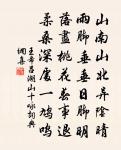 山南山北弄陰晴
雨腳垂垂日腳明
落盡桃花春事退
柔桑深處一鳩鳴
王希呂湖山十詠詞典
網集